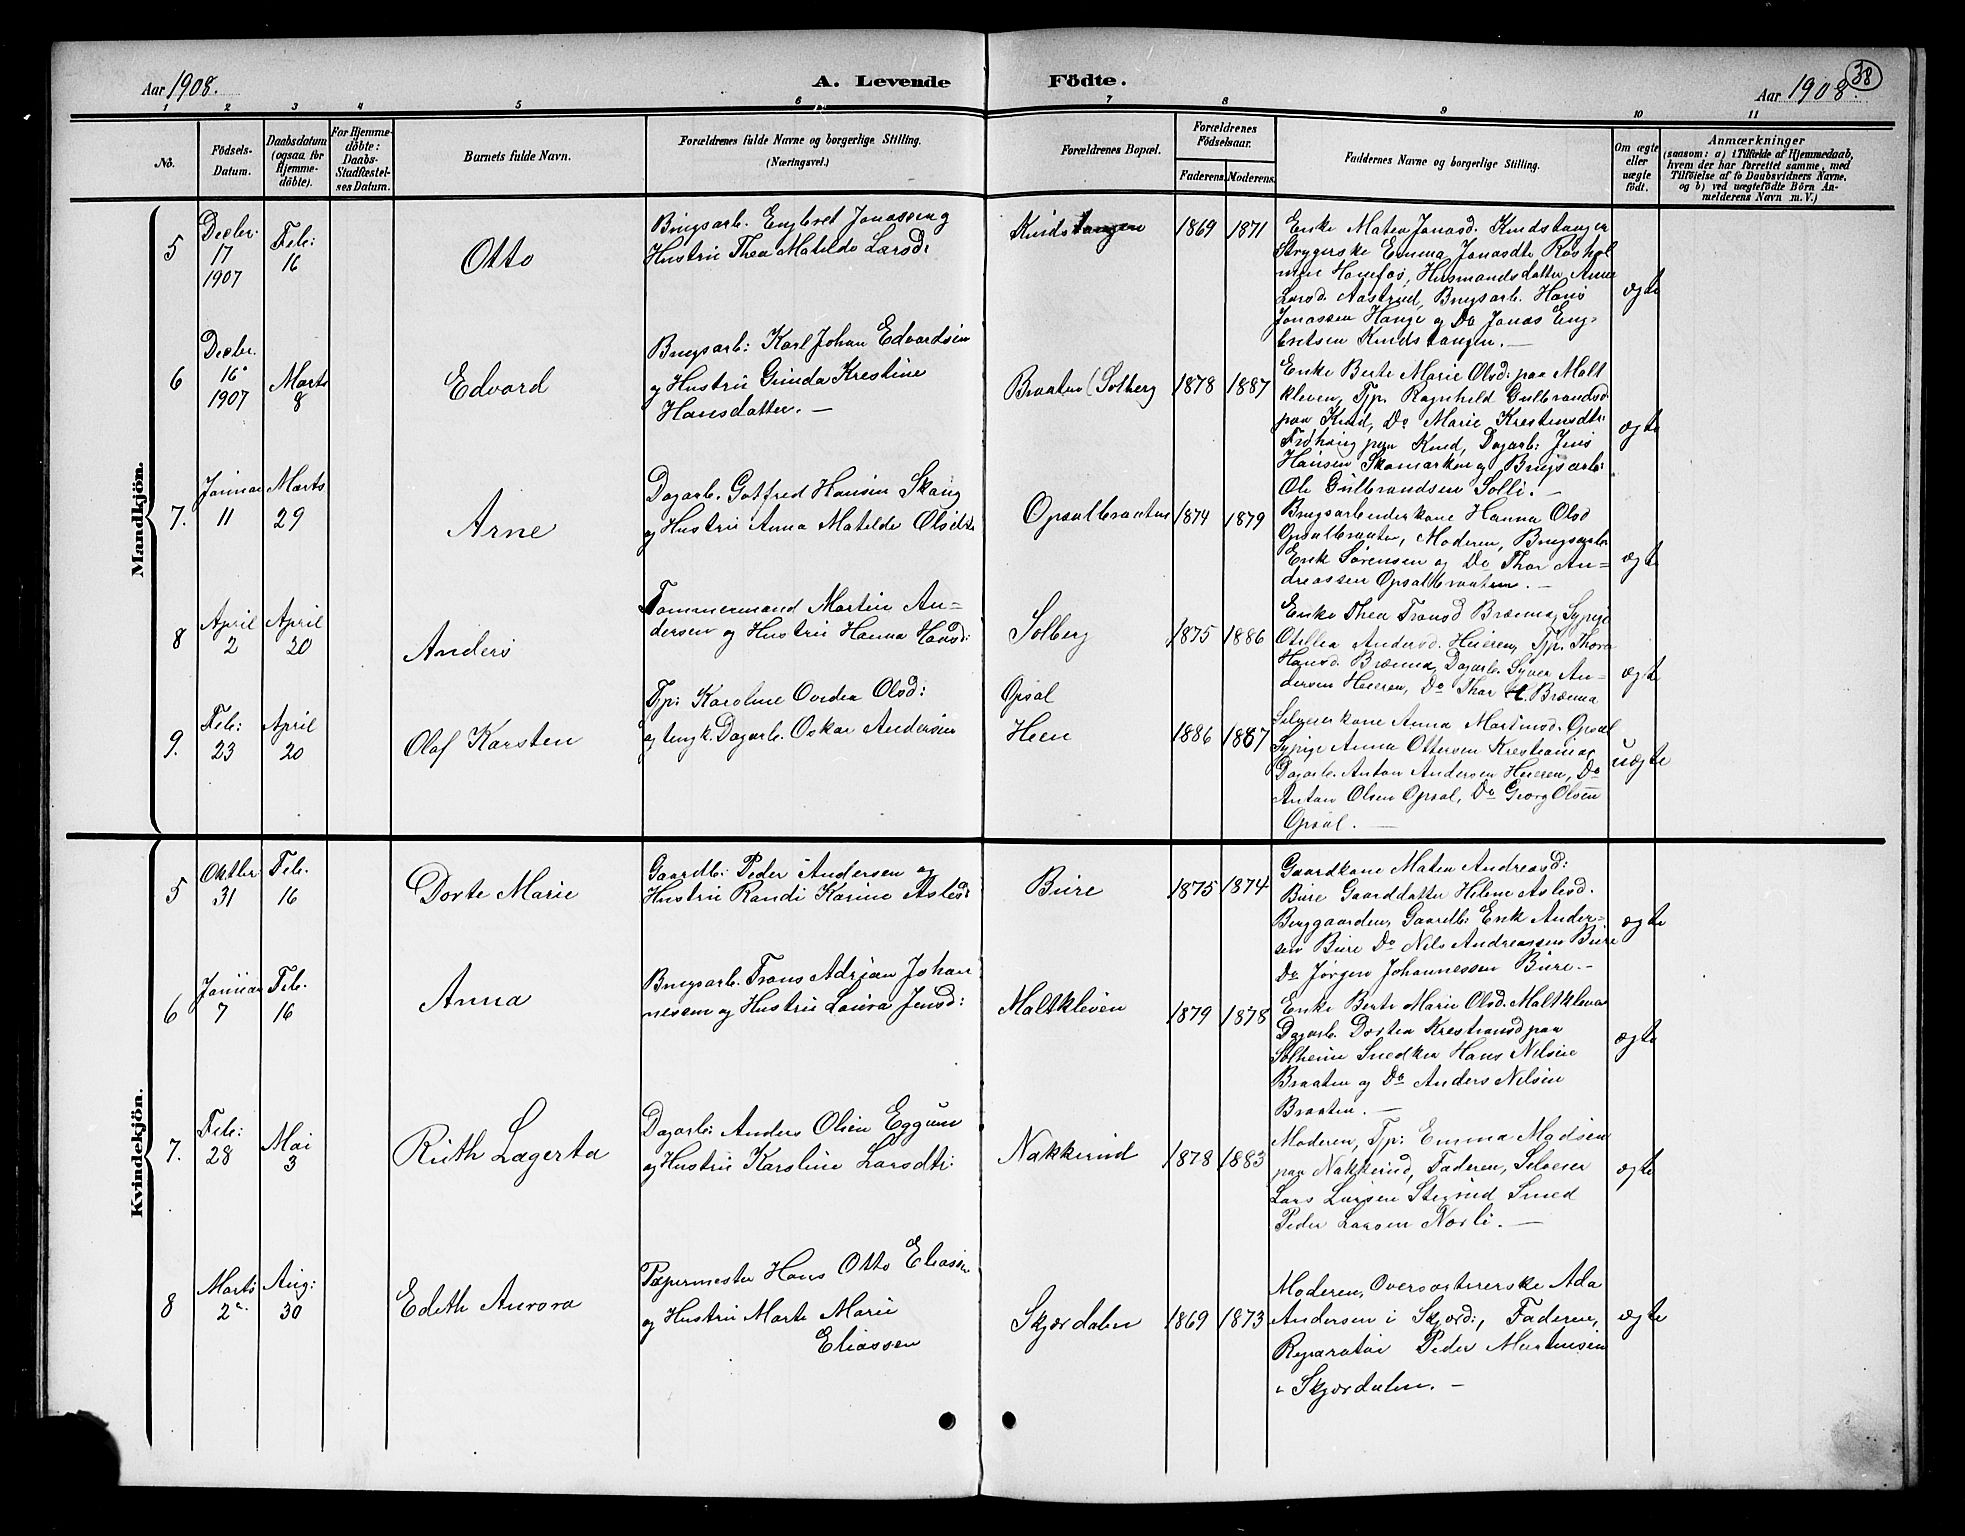 Aar 1908.
A. Levende Födte.
Aar 1908.
38
1 2 3 4 5 6 7 8 9 10 11
No.
Födsels-
Datum.
Daabsdatum
(ogsaa for
Hjemme-
döbte).
For Hjemme-
döbte:
Daabs-
Stadfæstel-
ses Datum.
Barnets fulde Navn.
Forældrenes fulde Navne og borgerlige Stilling.
(Næringsvei.)
Forældrenes Bopæl.
Forældrenes
Födselsaar.
Faderens. Moderens.
Faddernes Navne og borgerlige Stilling.
Om ægte
eller
uægte
født.
Anmærkninger
(saasom: a) i Tilfælde af Hjemmedaab,
hvem der har forrettet samme, med
Tilföielse af to Daabsvidners Navne,
og b) ved uægtefödte Börn An-
melderens Navn m. V.)
Mandkjön.
5
Decbr.
17
1907
Feb:
16
Otto
Brugsarb. Engbret Jonassen og
Hustru Thea Matilde Larsd:
Kindstangen
1869 1871
Enke Matea Jonasd. Kindstangen
Strygerske Emma Jonasdtr Røshol
men Hønefos, Husmandsdatter Anne
Larsd. Aastrud, Brugsarb. Hans
Jonassen Hauge og Do Jonas Eng-
bretsen Kindstangen. —
ægte
6
Decbr.
16
1907
Marts
8
Edvard
Brugsarb: Karl Johan Edvardsen
og Hustru Gunda Kristine
Hansdatter. —
Braaten (Solberg
1878 1887
Enke Berte Marie Olsd: paa Malt
kleven, Tjp. Ragnhild Gulbrandsd.
paa Kind, Do Marie Kristensdtr:
paa Kind, Dagarb. Jens
Hansen Skamarken og Brugsarb:
Ole Gulbrandsen Solli. —
ægte
7.
Januar
11
Marts
29
Arne
Dagarb. Gotfred Hansen Skaug
og Hustru Anna Matilde Olsdtr
Opsalbraaten
1874 1879
Brugsarbeiderkone Hanna Olsd
Opsalbraaten, Moderen, Brugsarb
Erik Sørensen og Do Thor An-
dreassen Opsalbraaten. —
ægte
8
April
2
April
20
Anders
Tømmermand Martin An-
dersen og Hustru Hanna Hansd:
Solberg
1875 1886
Enke Thea Fransd Brænna, Sypige
Otillia Andersd. Heieren, Tjp. Thora
Hansd. Brænna, Dagarb. Syver An-
dersen Heieren, Do Thor H. Brænna
ægte
9.
Feb:
23
April
20
Olaf Karsten
Tjp: Karoline Ovedia Olsd:
og ungk. Dagarb. Oskar Andersen
Opsal
Heen
1886 1887
Selveierkone Anna Martinsd. Opsal
Sypige Anna Ottersen Kristiania,
Dagarb. Anton Andersen Heieren, Do
Anton Olsen Opsal, Do Georg Olsen
Opsal. —
uægte
Kvindekjön.
5
Oktbr:
31
Feb.
16
Dorte Marie
Gaardb: Peder Andersen og
Hustru Randi Karine Aslesd:
Bure
1875 1874
Gaardkone Matea Andreasd:
Bure Gaarddatter Helene Aslesd.
Berggaarden, Gaardb: Erik Ander-
sen Bure Do Nils Andreassen Bure
Do Jørgen Johannessen Bure. —
ægte
6
Januar
7
Feb.
16
Anna
Brugsarb. Frans Adrian Johan
nesen og Hustru Laura Jensd:
Maltkleven
1879 1878
Enke Berte Marie Olsd. Maltkleva
Dagarb. Dortea Kristiansd paa
Solheim Snedker Hans Nilsen
Braaten og Do Anders Nilsen
Braaten. —
ægte
7.
Feb:
28
Mai
3
Ruth Lagerta
Dagarb: Anders Olsen Eggum
og Hustru Karoline Larsdtr:
Nakkerud
1878 1883
Moderen, Tjp: Emma Madsen
paa Nakkerud, Faderen, Selveier
Lars Larsen Stegrud Smed
Peder Larsen Norli. —
ægte
8
Marts
2
Aug:
30
Edith Aurora
Papermester Hans Otto Eliassen
og Hustru Marte Marie
Eliassen
Skjærdalen
1869 1873
Moderen, Ada
Andersen i Skjærd:, Faderen,
Reparatør Peder Martinsen
i Skjærdalen. —
ægte